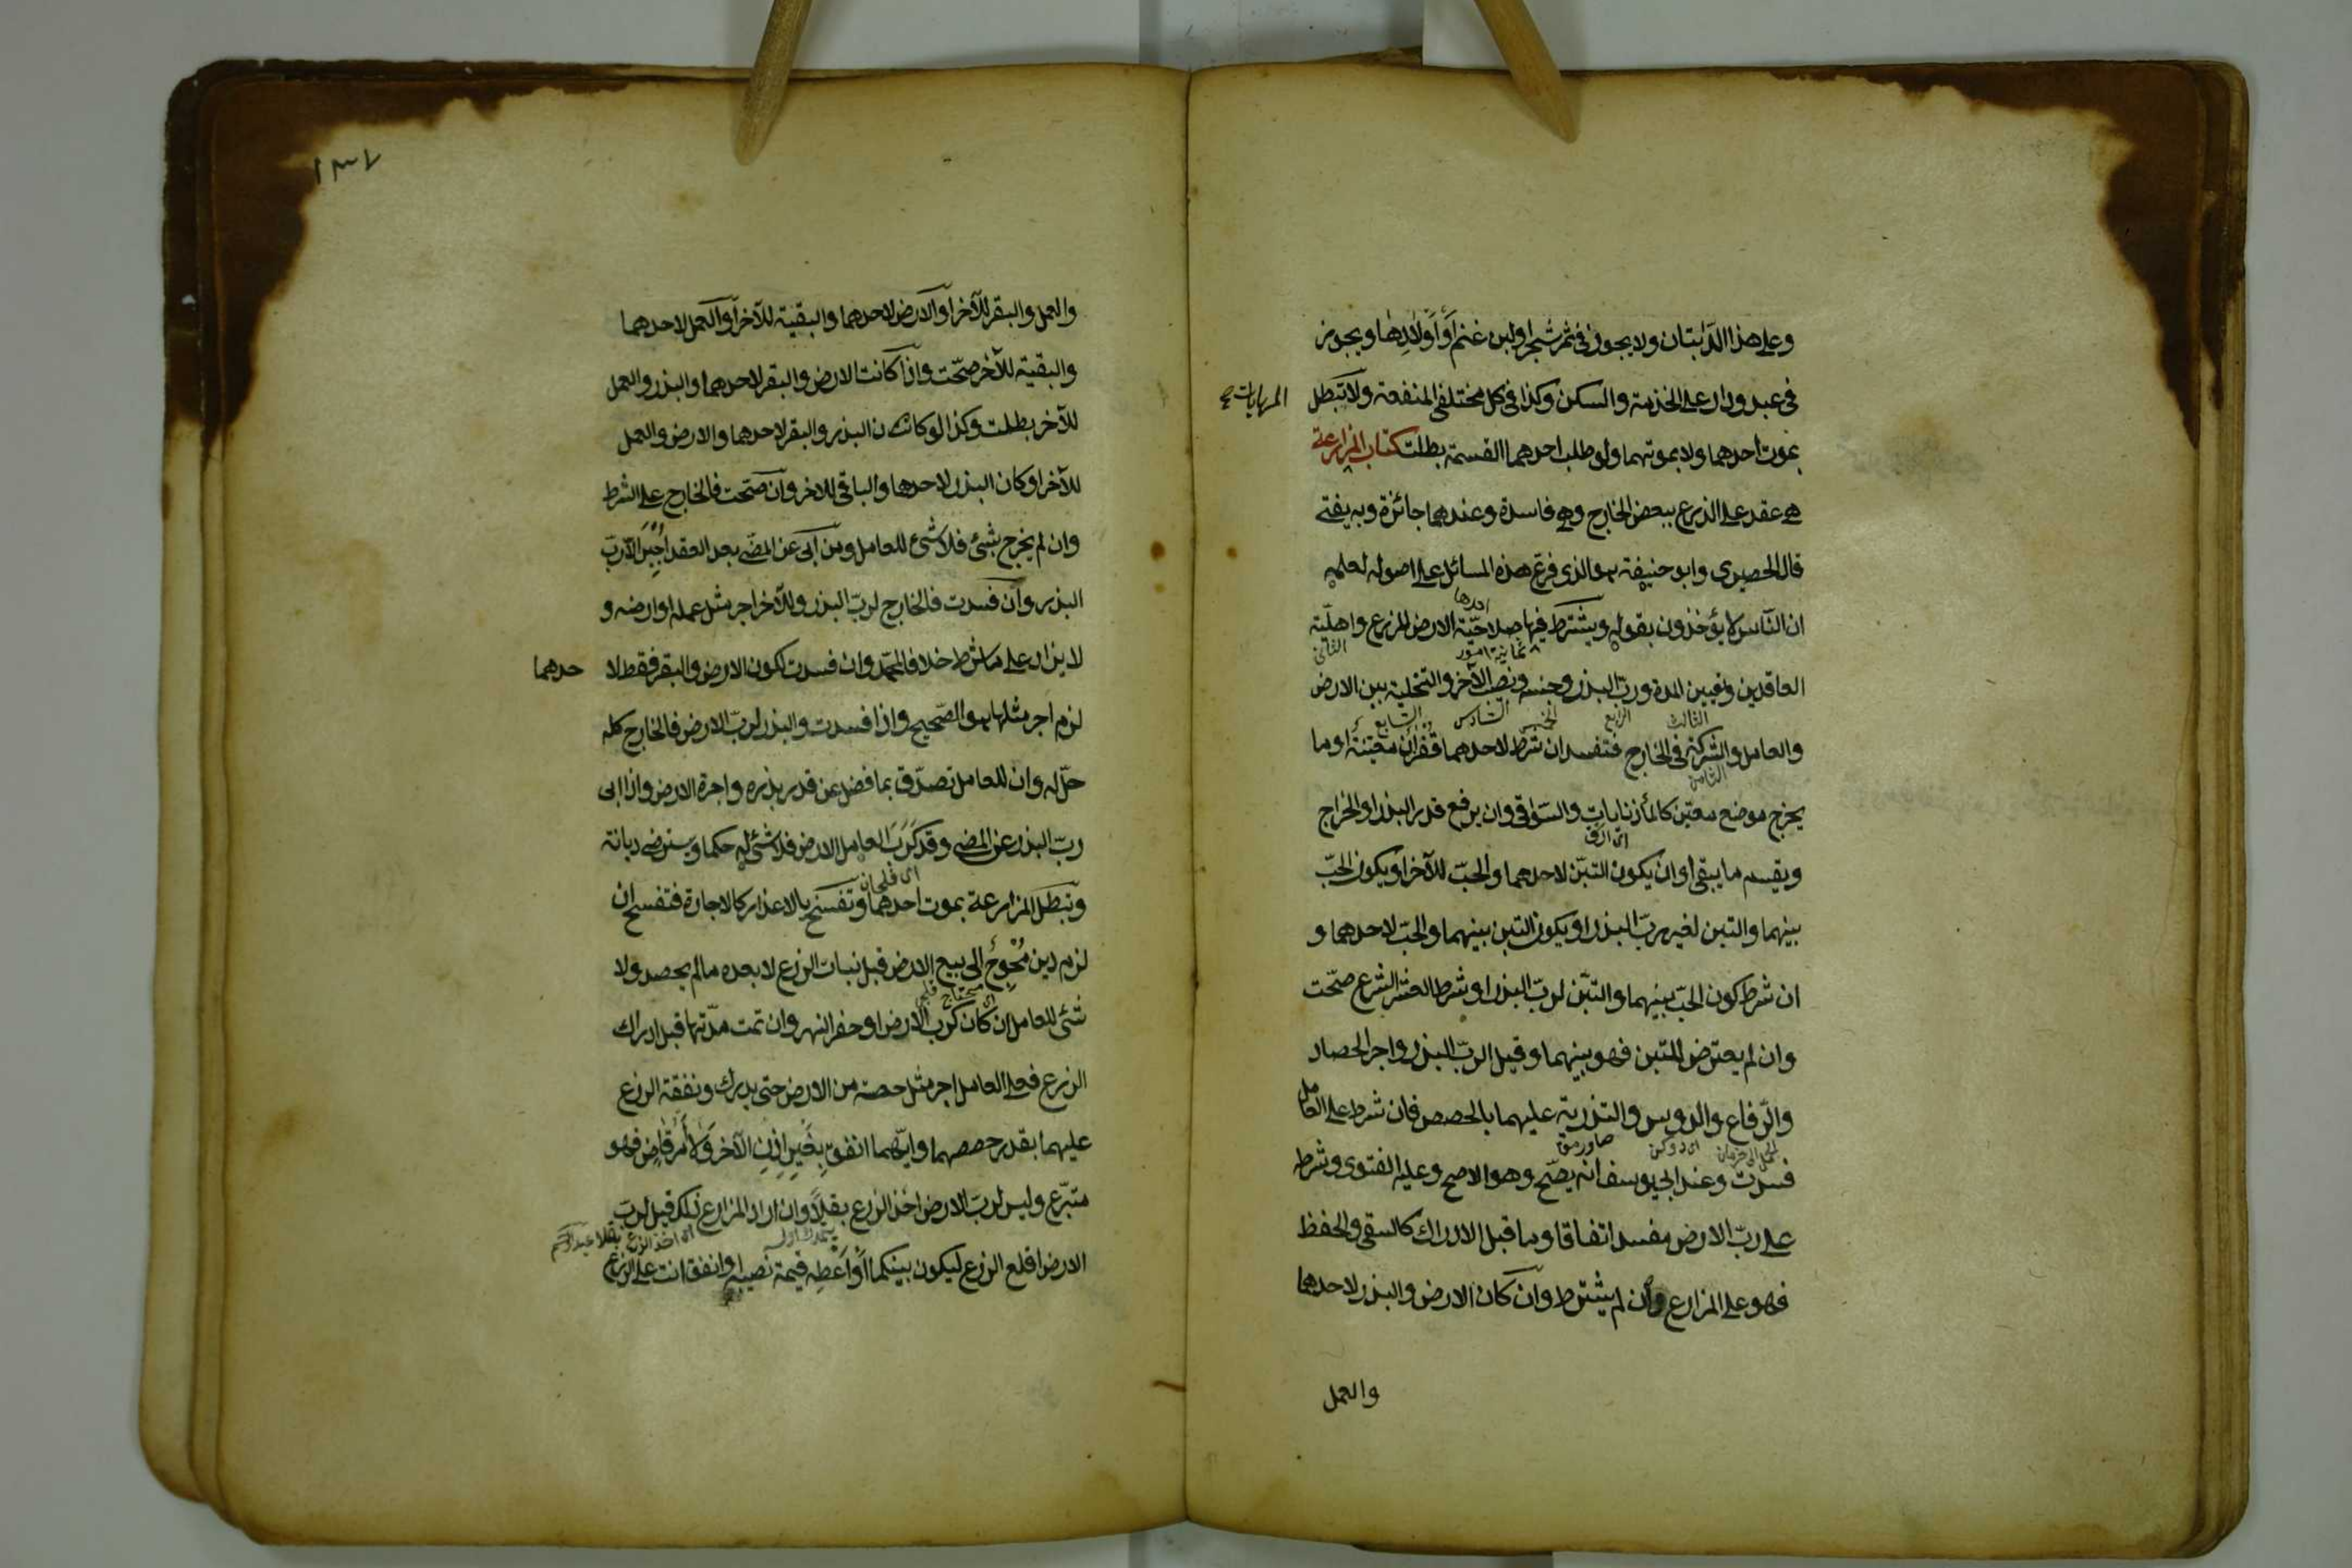 وعلى هذا الدابتان ولا يجوز في ثمر شجر او لبن غنم أو أولادها ويجوز
في عبد ودار على الخدمة والسكن وكذا في كل مختلفى المنفعة ولا تبطل
المهايات صح
بموت احدهما ولا بموتهما ولو طلب احدهما القسمة بطلت كتاب المزارعة
هي عقد على الزرع ببعض الخارج وهي فاسدة وعندهما جائزة وبه يفتى
قال الحصيرى وابو حنيفة هو الذى فرع هذه المسائل على اصوله لعلمه
احدها
ان الناس لا يؤخذون بقوله ويشترط فيها صلاحية الارض للزرع واهلية
ثمانية امور الثانى
العاقدين وتعيين المدة ورب البذر وجنسه ونصيب الآخر والتخلية بين الارض
الثالث الرابع الخامس السادس السابع
والعامل والشركة في الخارج فتفسد ان شرط لاحدهما قفزان معينة او ما
الثامن
يخرج موضع معين كالمأذنايات والسواقى وان يرفع قدر البذر او الخراج
اى ارق
ويقسم ما يبقى او ان يكون التبن لاحدهما والحب للآخر او يكون الحب
بينهما والتبن لغير رب البذر او يكون التبن بينهما والحب لاحدهما و
ان شرط كون الحب بينهما والتبن لرب البذر او شرطا العشر الشرع صحت
وان لم يعترض للتبن فهو بينهما وقيل لرب البذر واجر الحصاد
والرفاع والدوس والتذرية عليهما بالحصص فان شرط على العامل
صاورمق
فسدت وعند ابي يوسف انه يصح وهو الاصح وعليه الفتوى وشرطه
على رب الارض مفسد اتفاقا وما قبل الادراك كالسقى والحفظ
فهو على المزارع وان لم يشترط وان كان الارض والبذر لاحدهما
والعمل
١٣٧
والعمل والبقر للآخر او الارض لاحدهما والبقية للآخر او العمل لاحدهما
والبقية للآخر صحت واذا كانت الارض والبقر لاحدهما والبذر والعمل
للآخر بطلت وكذا لو كان البذر والبقر لاحدهما والارض والعمل
للآخر او كان البذر لاحدهما والباقى للاخر وان صحت فالخارج على الشرط
وان لم يخرج شئ فلا شئ للعامل ومن ابى عن المضى بعد العقد اجبر الا رب
البذر وان فسدت فالخارج لرب البذر وللآخر اجر مثل عمله او ارضه و
لا يزاد على ما شرط خلافا لمحمد وان فسدت لكون الارض والبقر فقط لا حدهما
لزم اجر مثلها هو الصحيح واذا فسدت والبذر لرب الارض فالخارج كله
حل له وان للعامل تصدق بما فضل عن قدر بذره واجرة الارض واذا ابى
رب البذر عن المضى وقد كرب العامل الارض فلا شئ له حكما ويسترضى ديانة
وتبطل المزارعة بموت احدهما وتفسخ بالاعذار كالاجارة فتفسخ ان
لزم دين محوج الى بيع الارض قبل نبات الزرع لا بعده ما لم يحصد ولا
اى محتاج
شئ للعامل ان كان كرب الارض او حفر النهر وان تمت مدتها قبل ادراك
الزرع فعلى العامل اجر مثل حصته من الارض حتى يدرك ونفقة الزرع
عليهما بقدر حصصهما وايهما انفق بغير اذن الآخر ولا أمر قاض فهو
متبرع وليس لرب الارض اخذ الزرع بقلا وان اراد المزارع ذلك قيل لرب
اى اخذ الزرع بقلا
الارض اقلع الزرع ليكون بينكما أو أعطه قيمة نصيبه او انفق انت على الزرع